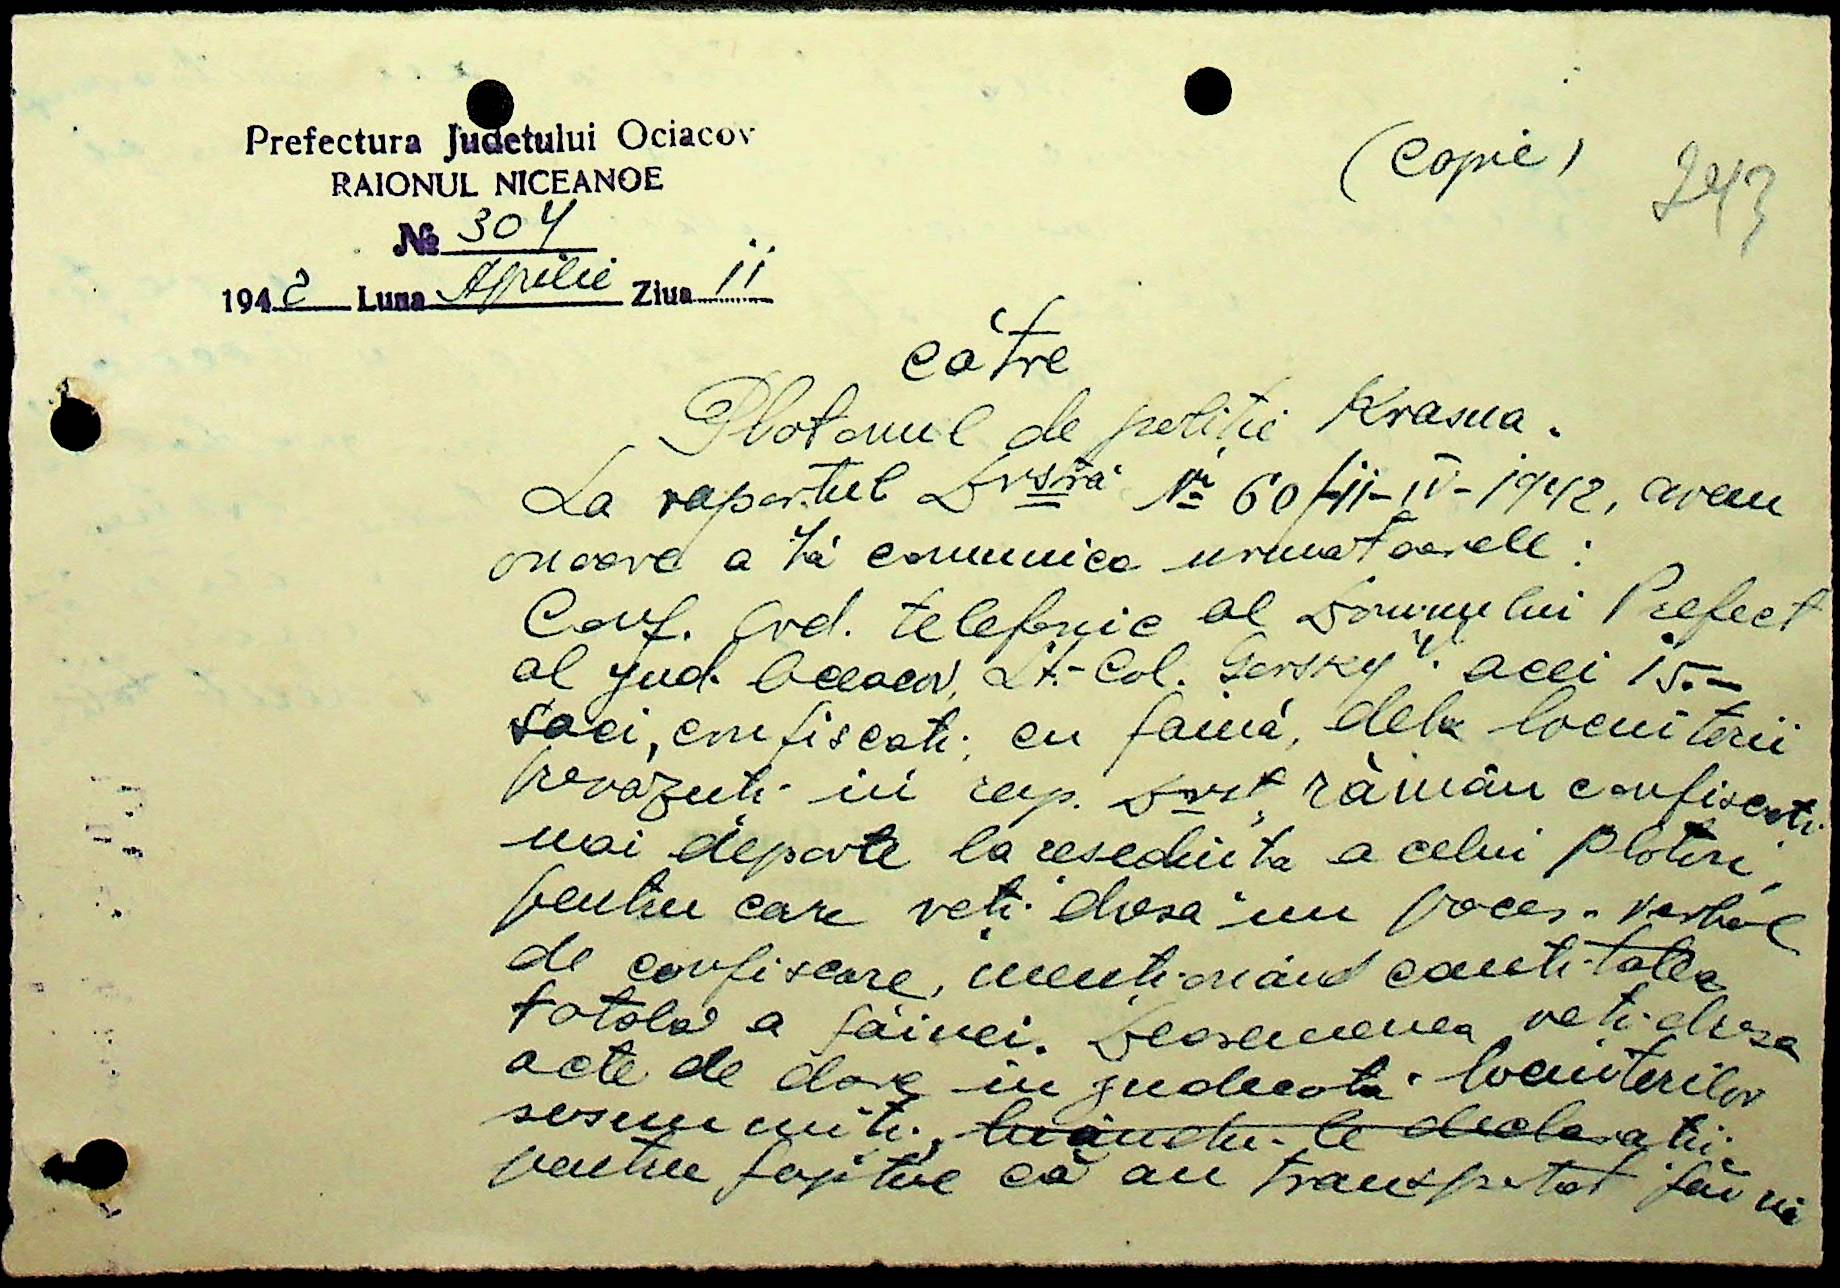 Prefectura Judetului Ociacov
RAIONUL NICEANOE
№ 304
1942 Luna Aprilie Ziua 11
(Copie)
243
către
Plotonul de poliție Krasna.
La raportul Dvstră № 60/11-IV-1942, avem
onoare a Vă comunica urmatoarele:
Conf. Ord. telefonic al Domnului Prefect
al jud. Oceacov, Lt.-Col. Gorsky V. acei 15.-
saci, confiscați, cu faină, dela locuitorii
prevăzuți in rap. Dvst, rămân confiscați
mai departe la resedinta acelui Ploton,
pentru care veți dresa un proces-verbal
de confiscare, menționând cantitatea
totala a făinei. Deasemenea veți dresa
acte de dare in judecată locuitorilor
susnumiți, luându-le declarații.
pentru faptul că au transportat făină